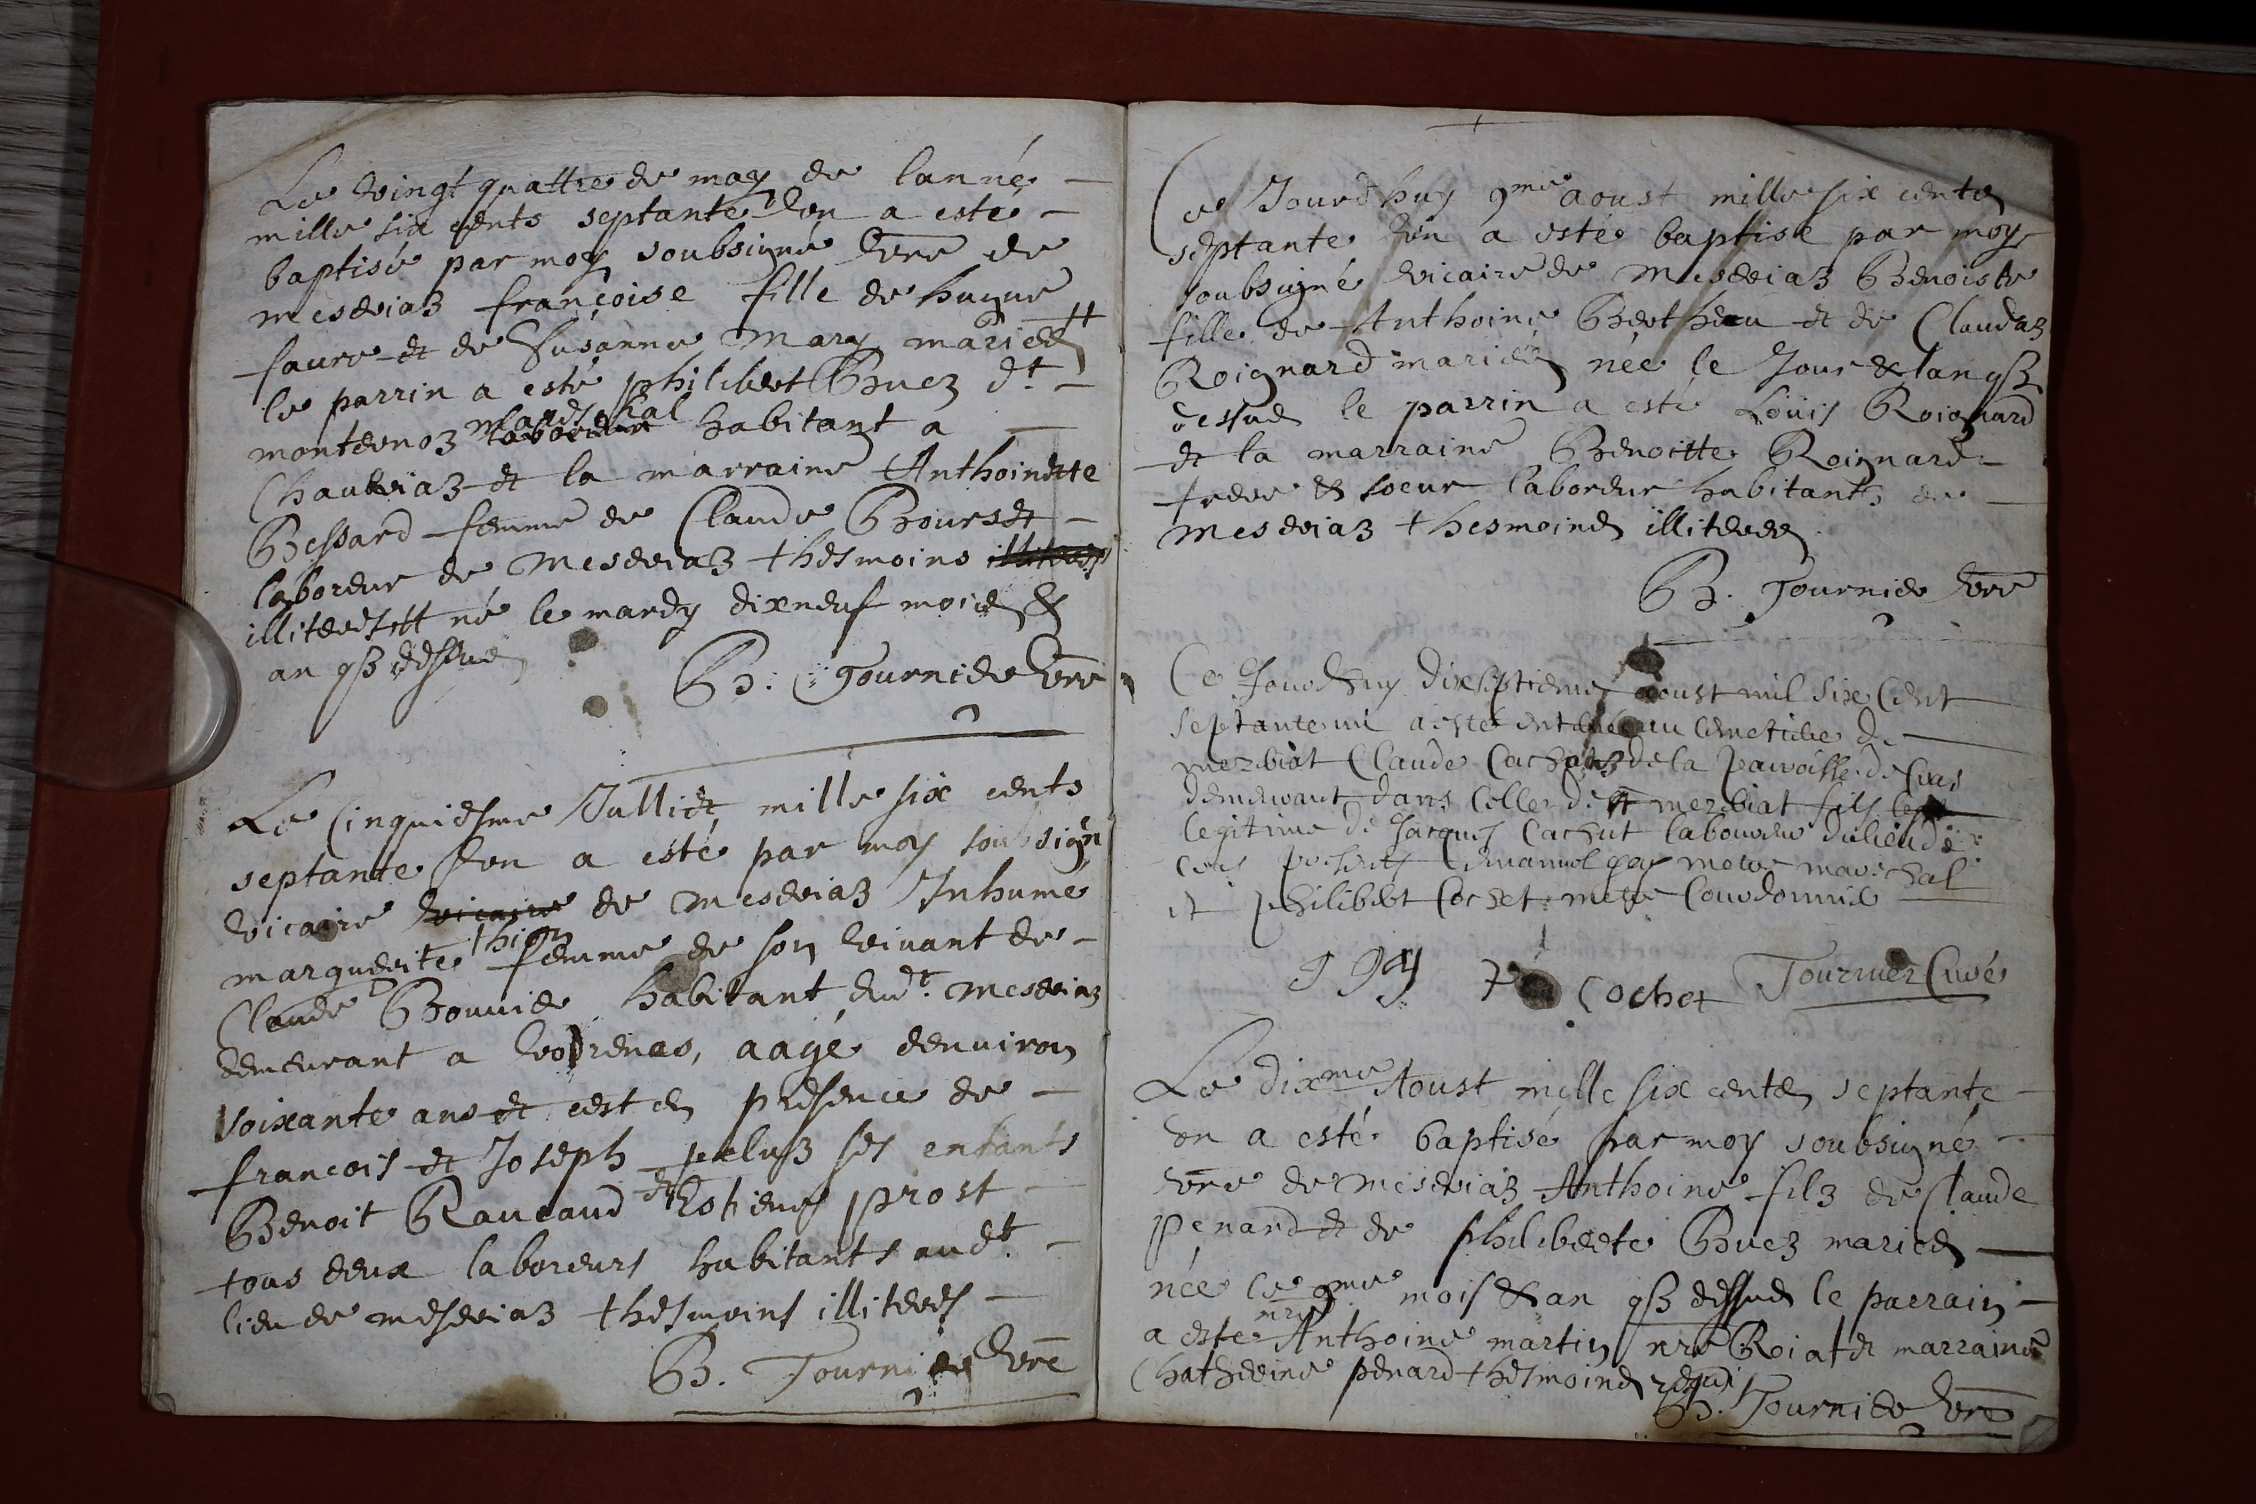 Le vingt quattre de may de lanné
mille six cents septante Un a esté
baptisé par moy soubsigné Vre de
mesviaz françoise fille de hugue
faure et de Susanne Mary mariés
le parrin a esté philibert Buez dt
monternoz mareschal habitant a
Chauviaz et la marraine Anthoinette
Bessard femme de Claude Bourset
laboreur de Mesveiaz thesmoins
illiterés né le mardy dixneuf mois &
an qs dessus
B. Tournier Vre
Le Cinquiesme Julliet mille six cents
septante Un a esté par moy soubsigné
vicaire vicaire de Mesveiaz Inhumé
marguerite thion femme de son vivant de
Claude Bouvier habitant dudt Mesveiaz
demeurant a, aagé denviron
soixante ans et cest en presence de
francois et Joseph peluz ses enfants
Benoit Raucaud et Estiene prost
tous deux laboreurs habitants audt
lieu de mesveiaz thesmoins illiterés
B. Tournier Vre
Ce Jourdhuy 9me aoust mille six cents
septante Un a esté baptise par moy
soubsigné vicaire de Mesveiaz Benoiste
fille de Anthoine Bertheau et de Claudaz
Roignard mariés née le Jour & lan qs
dessus le parrin a esté Loüis Roignard
et la marraine Benoitte Roignard
frere & soeur laboreur habitants de
Mesveiaz thesmoins illiterés
B. Tournier Vre
Ce Jourdhuy dixseptieme aoust mil six Cent
septante un a esté enterré au Cimetiere de
merviat Claude Cachutz de la paroisse de Cras
demeurant dans Celle de merviat fils
legitime de Jacques Cachut laboureur du lieu de
Cras Emanuel gay metre marechal
et philibert Cochet metre Courdonnier
Cochet Tournier Curé
Le dixme Aoust mille six cents septante
Un a esté baptisé par moy soubsigné
Vre de Mesveiaz Anthoine filz de Claude
penard et de philiberte Buez mariés
née le 9me mois & an qs dessus le parrain
a esté mre Anthoine martin nre Roial et marraine
Chatherine penard thesmoins requis
B. Tournier Vre